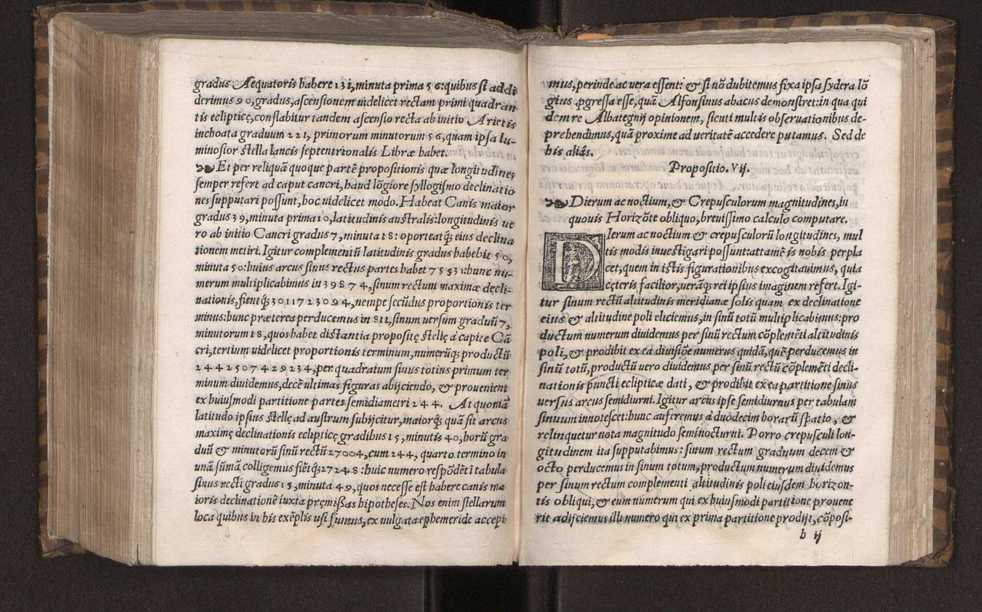 gradus Aequatoris habere 131, minuta prima 56: quibus si addi
derimus 90, gradus, ascensionem uidelicet rectam primi quadran
tis eclipticę, conflabitur tandem ascensio recta ab initio Arietis
inchoata graduum 221, primorum minutorum 56, quam ipsa lu-
minosior stella lancis septentrionalis Libræ habet.
Et per reliquā quoque partē propositionis quæ longitudines
semper refert ad caput cancri, haud lōgiore syllogismo declinatio
nes supputari possunt, hoc uidelicet modo. Habeat Canis maior
gradus 39, minuta prima 10, latitudinis australis: longitudinis ue
ro ab initio Cancri gradus 7, minuta 18: oporteatq; eius declina
tionem metiri. Igitur complementū latitudinis gradus habebit 50,
minuta 50: huius arcus sinus rectus partes habet 77533: hunc nu-
merum multiplicabimus in 39874, sinum rectum maximæ decli-
nationis, fientq; 3011723094, nempe secūdus proportionis ter
minus: hunc præterea perducemus in 811, sinum uersum graduū 7,
minutorum 18, quos habet distantia propositę stellę à capite Cā
cri, tertium uidelicet proportionis terminum, numerūq; productū
2442507429234, per quadratum sinus totius primum ter
minum diuidemus, decē ultimas figuras abijciendo, & prouenient
ex huiusmodi partitione partes semidiametri 244. At quoniā
latitudo ipsius stellę ad austrum subijcitur, maiorq; quā sit arcus
maximę declinationis eclipticę gradibus 15, minutis 40, horū gra
duū & minutorū sinū rectū 27004, cum 244, quarto termino in
unā sūmā colligemus fiētq; 27248: huic numero respōdēt ī tabula
sinus recti gradus 15, minuta 49, quos necesse est habere canis ma
ioris declinationē iuxta pręmissas hipotheses. Nos enim stellarum
loca quibus in his exēplis usi sumus, ex uulgata ephemeride accepi
mus, perinde ac uera essent: & si nō dubitemus fixa ipsa sydera lō
gius pgressa esse, quā Alfonsinus abacus demonstret: in qua qui
dem re Albategnij opinionem, sicuti multis obseruationibus de-
prehendimus, quā proxime ad ueritatē accedere putamus. Sed de
his aliàs.
Propositio. vij.
Dierum ac noctium, & Crepusculorum magnitudines, in
quouis Horizōte obliquo, breuissimo calculo computare.
DIerum ac noctium & crepusculorū longitudines, mul
tis modis inuestigari possunt: attamē is nobis perpla
cet, quem in istis figurationibus excogitauimus, quia
cęteris facilior, uerāq; rei ipsius imaginem refert. Igi
tur sinum rectū altitudinis meridianæ solis quam ex declinatione
eius & altitudine poli elicimus, in sinū totū multiplicabimus: pro
ductūm numerum diuidemus per sinū rectum cōplemēti altitudinis
poli, & prodibit ex ea diuisiōe numerus quidā, quē perducemus in
sinū totū, productū uero diuidemus per sinū rectū cōplemēti decli-
nationis puncti eclipticæ dati, & prodibit ex ea partitione sinus
uersus arcus semidiurni. Igitur arcus ipse semidiurnus per tabulam
sinuum innotescet: hunc auferemus à duodecim horarū spatio, &
relinquetur nota magnitudo seminocturni. Porro crepusculi lon-
gitudinem ita supputabimus: sinum rectum graduum decem &
octo perducemus in sinum totum, productum numerum diuidemus
per sinum rectum complementi altitudinis poli eiusdem horizon-
tis obliqui, & eum numerum qui ex huiusmodi partitione prouene
rit adijciemus illi numero qui ex prima partitione prodijt, cōposi-
b ij